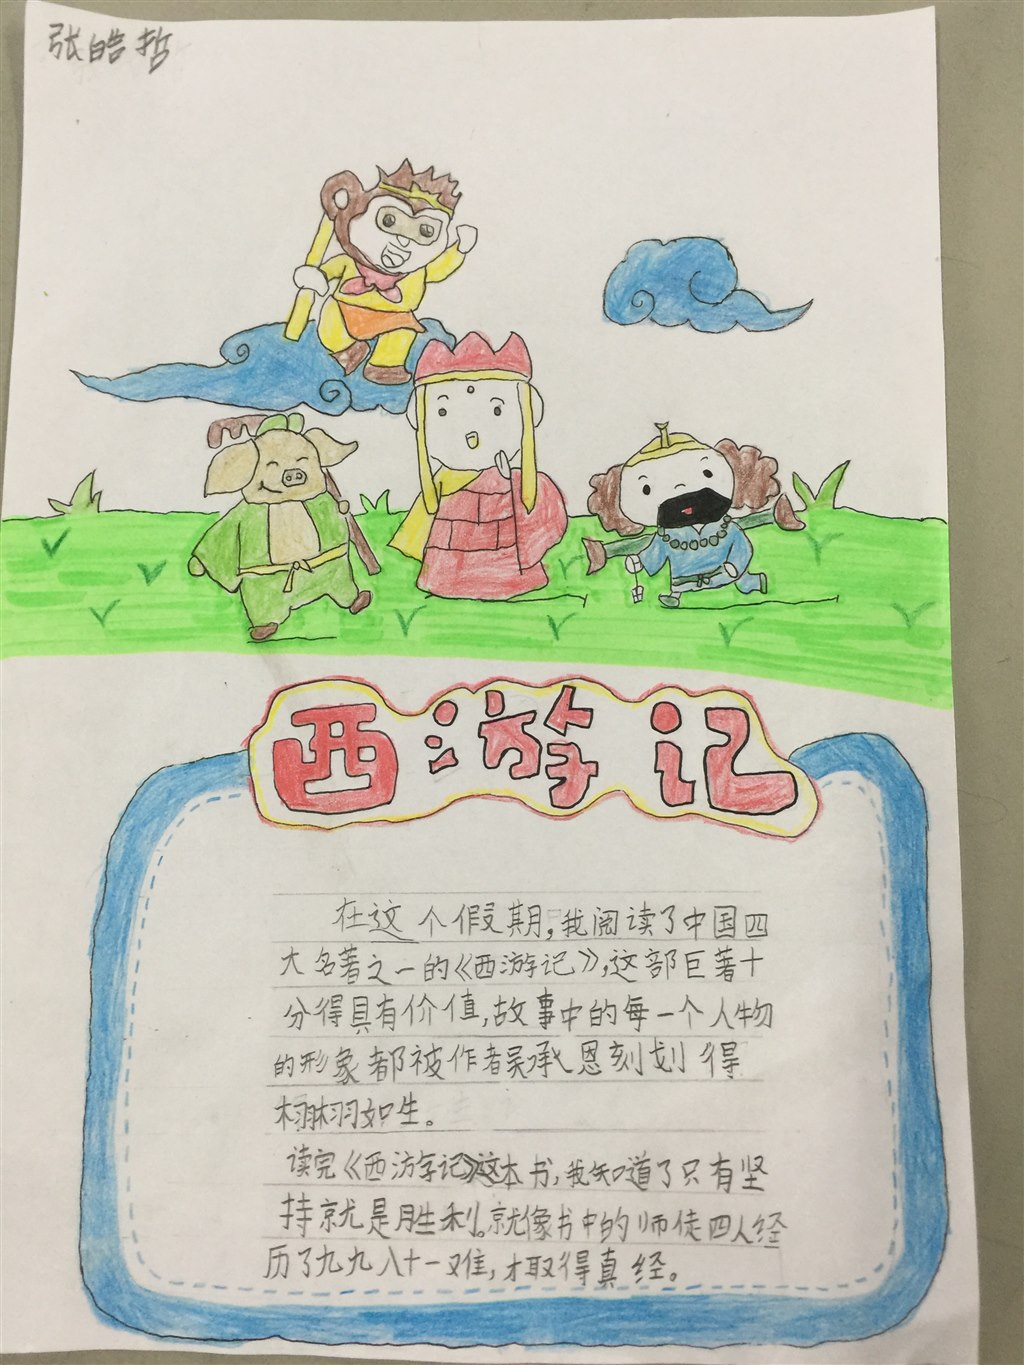 张皓哲
西游记
在这个假期,我阅读了中国四
大名著之一的《西游记》,这部巨著十
分得具有价值,故事中的每一个人物
的形象都被作者吴承恩刻划得
栩栩如生。
读完《西游记》这本书,我知道了只有坚
持就是胜利。就像书中的师徒四人经
历了九九八十一难,才取得真经。